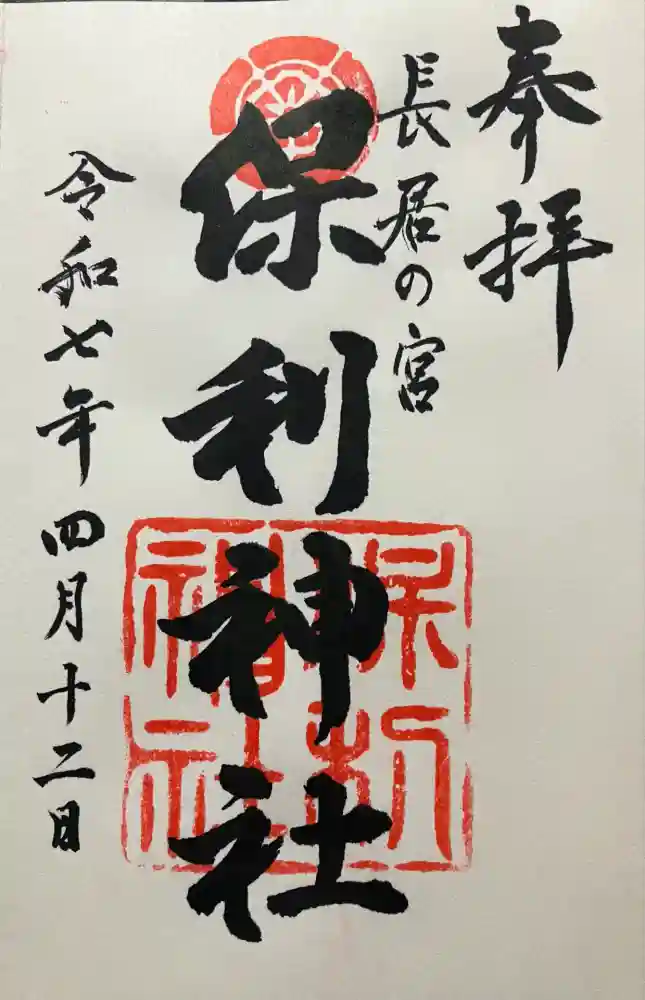 奉拝
長居の宮
保利神社
保利神社
令和七年四月十二日